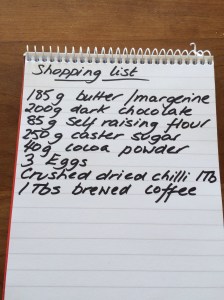 Shopping list
185g butter/margerine
200g dark chocolate
85g self raising flour
250g caster sugar
40g cocoa powder
3 Eggs
Crushed dried chilli 1Tb
1 Tbs brewed coffee